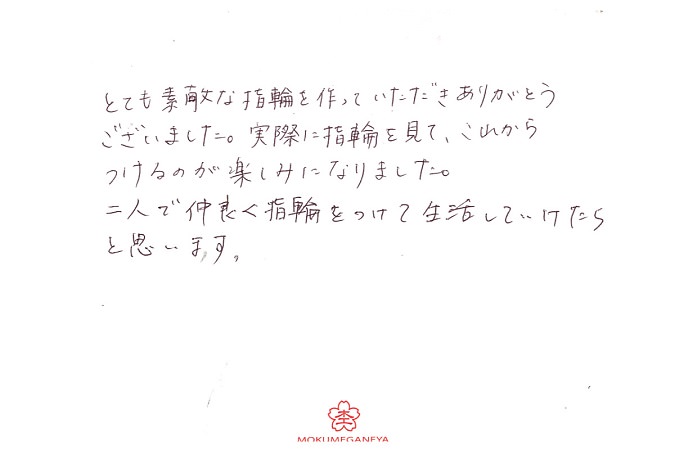 とても素敵な指輪を作っていただきありがとう
ございました。実際に指輪を見て、これから
つけるのが楽しみになりました。
二人で仲良く指輪をつけて生活していけたら
と思います。
杢
MOKUMEGANEYA